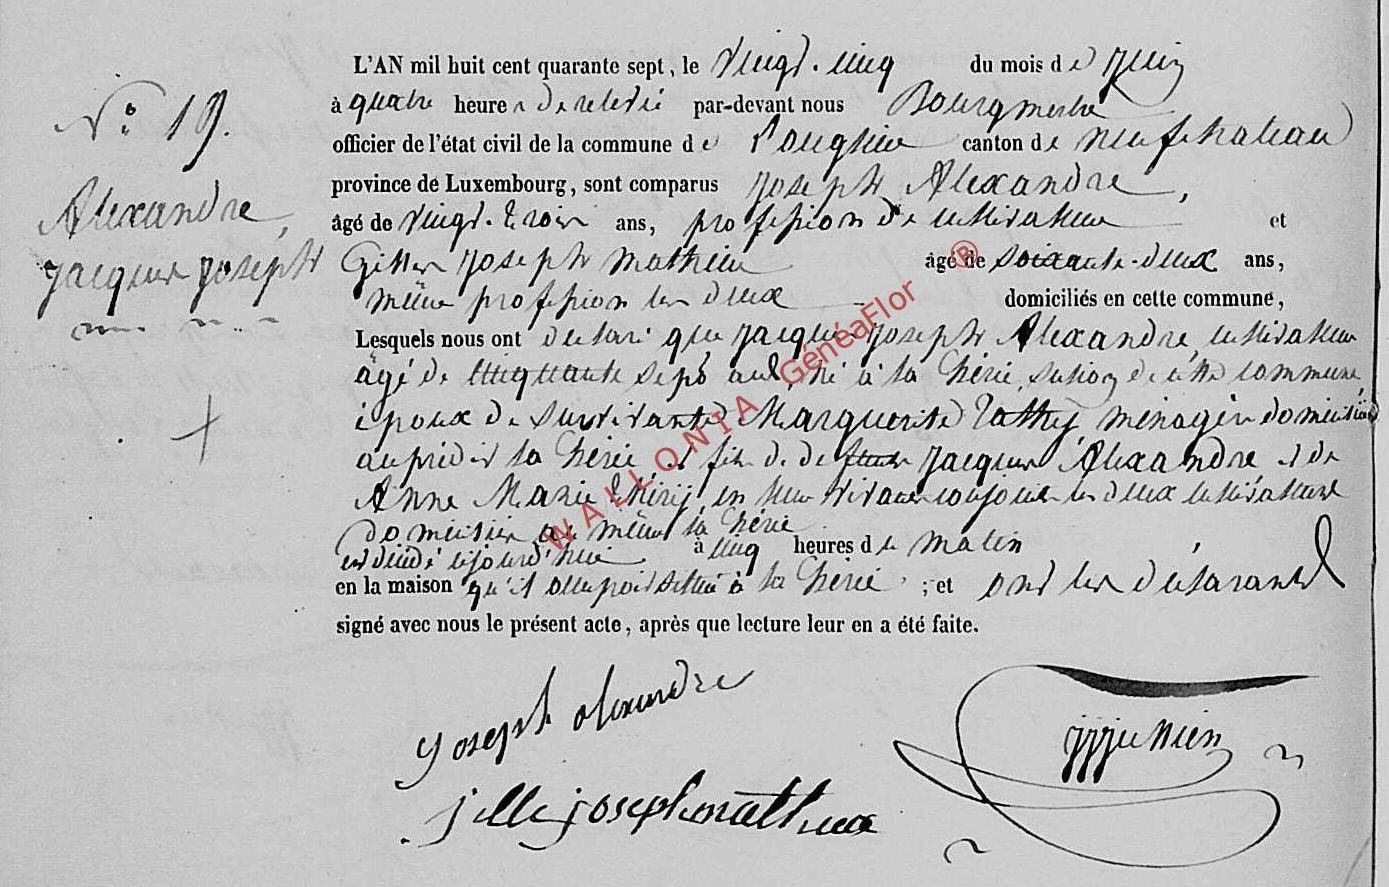 N° 19.
Alexandre,
jacques joseph
L'AN mil huit cent quarante sept, le vingt-cinq du mois de juin
à quatre heures de relevée par-devant nous Bourgmestre
officier de l'état civil de la commune de canton de neufchateau
province de Luxembourg, sont comparus joseph Alexandre,
âgé de vingt-trois ans, profession de cultivateur et
Gilles joseph mathieu âgé de soixante-deux ans,
même profession les deux domiciliés en cette commune,
Lesquels nous ont déclaré que jacques joseph Alexandre, cultivateur
âgé de cinquante sept ans, né à la hérie, section de cette commune,
époux de survivante Marguerite ménagère domiciliée
au prédit la hérie, et fils de de jacques Alexandre et de
Anne Marie en leur vivant conjoints les deux cultivateurs
domiciliés au même la hérie
est décédé cejourd'hui à cinq heures du matin
en la maison qu'il occupoit située à la hérie ; et ont les déclarants
signé avec nous le présent acte, après que lecture leur en a été faite.
joseph alexandre
jille joseph mathieu
WALLONIA GénéaFlor ®